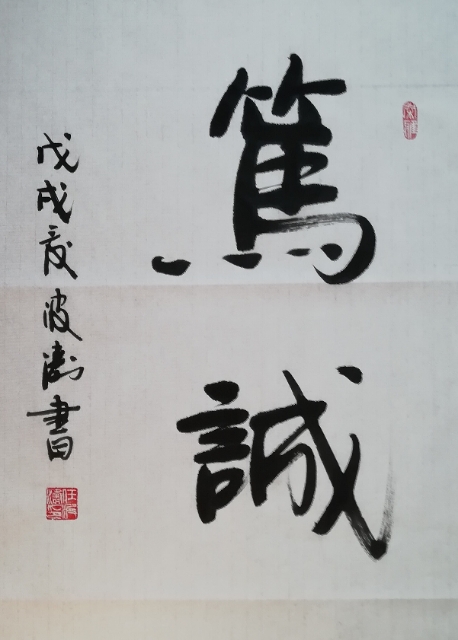 篤誠
戊戌夏波濤書